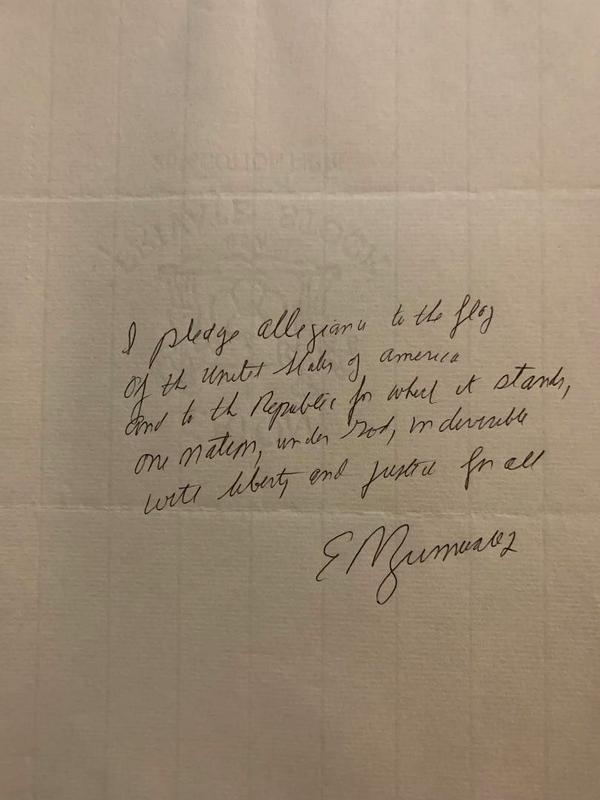 I pledge allegiance to the flag
of the United States of america
and to the Republic for which it stands,
one nation, under God, indivisible
with liberty and justice for all